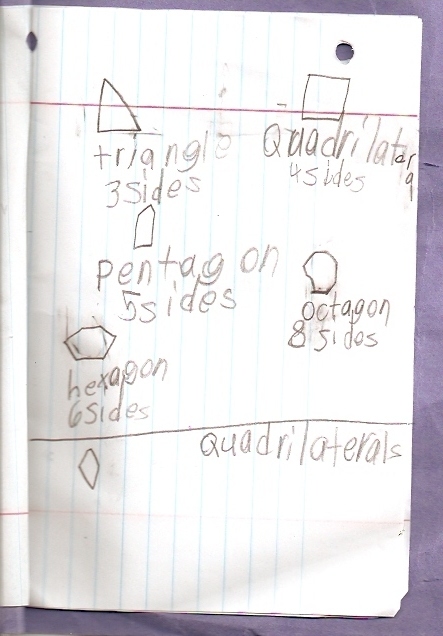 triangle
3 sides
Quadrilateral
4 sides
pentagon
5 sides
octagon
8 sides
hexagon
6 sides
Quadrilaterals